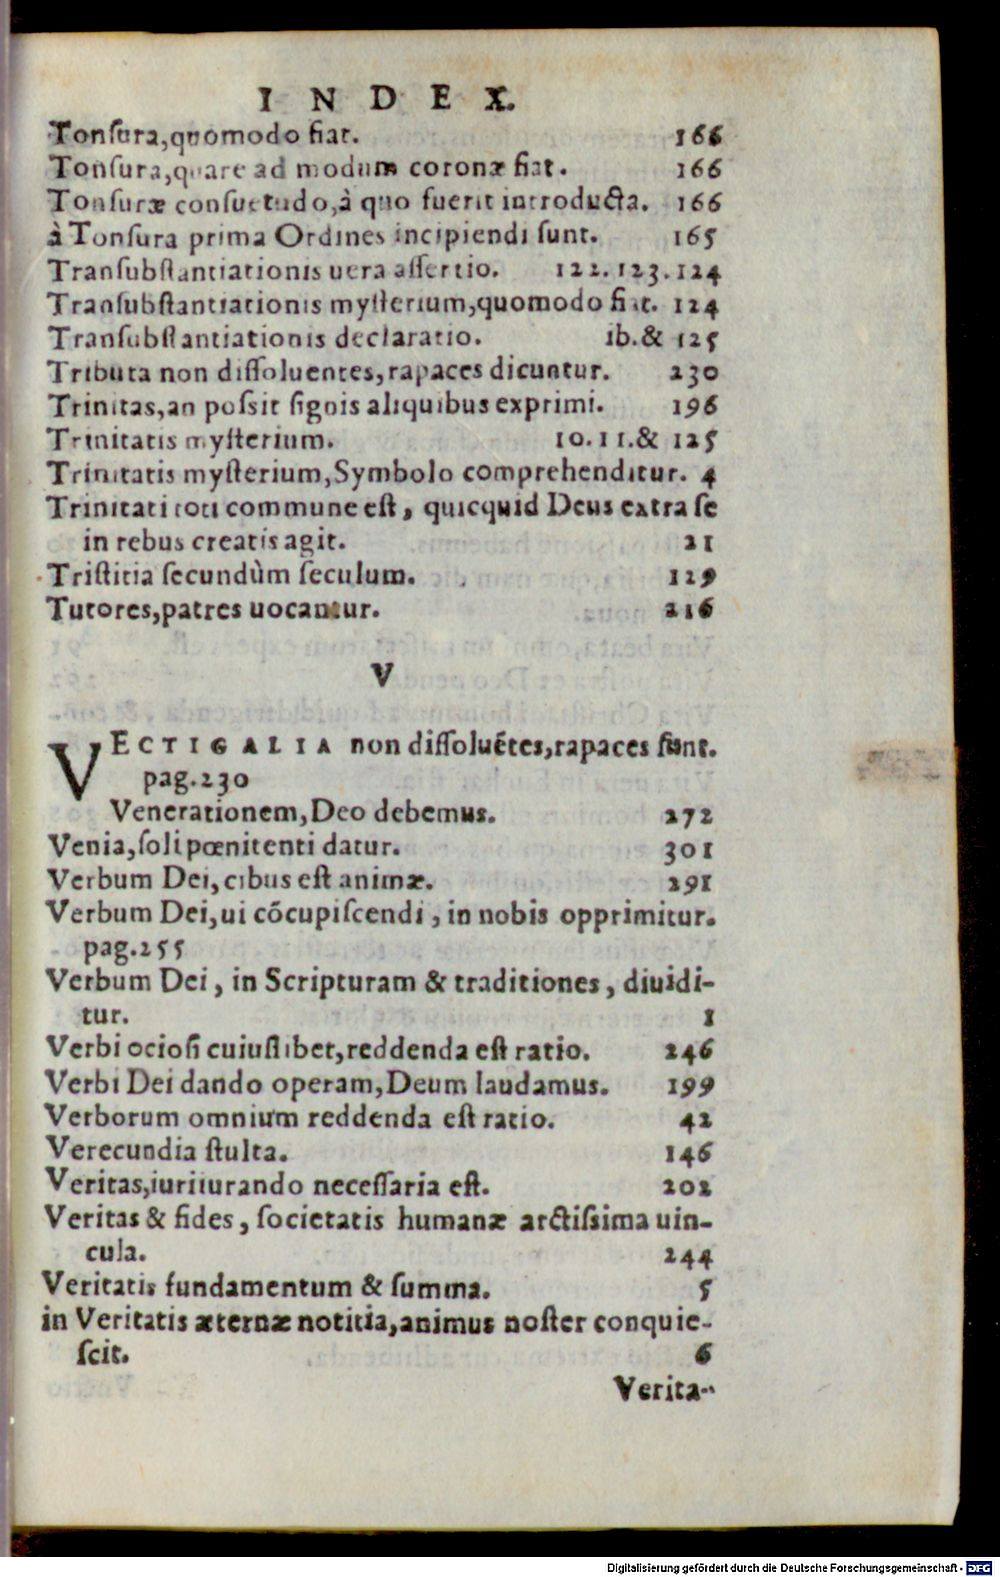 INDEX.
Tonſura,quomodo fiat. 166
Tonſura,quare ad modum coronæ fiat. 166
Tonſuræ conſuetudo,à quo fuerit introducta. 166
à Tonſura prima Ordines incipiendi ſunt. 165
Tranſubſtantiationis uera aſſertio. 122.123.124
Tranſubſtantiationis myſterium,quomodo fiat. 124
Tranſubſtantiationis declaratio. ib.& 125
Tributa non diſſoluentes,rapaces dicuntur. 230
Trinitas,an poſsit ſignis aliquibus exprimi. 196
Trinitatis myſterium. 10.11.& 125
Trinitatis myſterium,Symbolo comprehenditur. 4
Trinitati toti commune eſt, quicquid Deus extra ſe
in rebus creatis agit. 21
Triſtitia ſecundùm ſeculum. 129
Tutores,patres uocantur. 216
V
VECTIGALIA non diſſoluẽtes,rapaces ſunt.
pag.230
Venerationem,Deo debemus. 272
Venia,ſoli pœnitenti datur. 301
Verbum Dei,cibus eſt animæ. 291
Verbum Dei,ui cõcupiſcendi, in nobis opprimitur.
pag.255
Verbum Dei, in Scripturam & traditiones, diuidi-
tur. 1
Verbi ocioſi cuiuſlibet,reddenda eſt ratio. 246
Verbi Dei dando operam,Deum laudamus. 199
Verborum omnium reddenda eſt ratio. 42
Verecundia ſtulta. 146
Veritas,iuriiurando neceſſaria eſt. 202
Veritas & fides, ſocietatis humanæ arctiſsima uin-
cula. 244
Veritatis fundamentum & ſumma. 5
in Veritatis æternæ notitia,animus noſter conquie-
ſcit. 6
Verita-
Digitalisierung gefördert durch die Deutsche Forschungsgemeinschaft - DFG